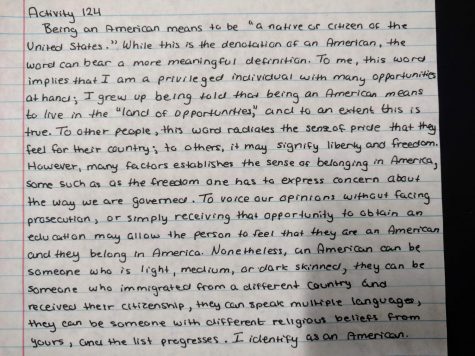 Activity 124
Being an American means to be "a native or citizen of the
United States." While this is the denotation of an American, the
word can bear a more meaningful definition. To me, this word
implies that I am a privileged individual with many opportunities
at hand; I grew up being told that being an American means
to live in the "land of opportunities," and to an extent this is
true. To other people, this word radiates the sense of pride that they
feel for their country; to others, it may signify liberty and freedom.
However, many factors establishes the sense of belonging in America,
some such as as the freedom one has to express concern about
the way we are governed. To voice our opinions without facing
prosecution, or simply receiving that opportunity to obtain an
education may allow the person to feel that they are an American
and they belong in America. Nonetheless, an American can be
someone who is light, medium, or dark skinned, they can be
someone who immigrated from a different country and
received their citizenship, they can speak multiple languages,
they can be someone with different religious beliefs from
yours, and the list progresses. I identify as an American.